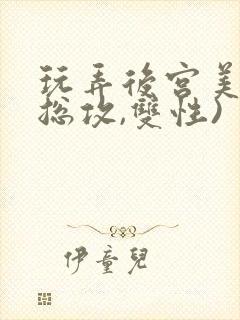 玩弄後宮美
總攻,雙性)
伊童兒